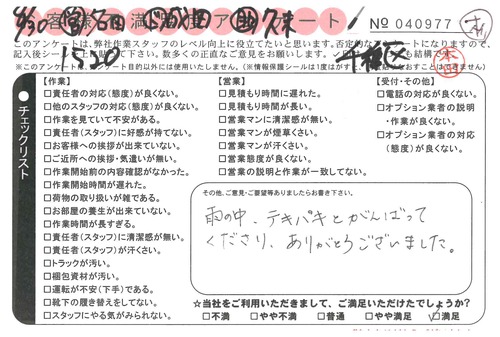 お客様満足度アンケート
No 040977
このアンケートは、弊社作業スタッフのレベル向上に役立てたいと思います。否定的なアンケートになりますので、
千種区
13:30
チェックリスト
【作業】
□責任者の対応(態度)が良くない。
□他のスタッフの対応(態度)が良くない。
□作業を見ていて不安がある。
□責任者(スタッフ)に好感が持てない。
□お客様への挨拶が出来ていない。
□ご近所への挨拶・気遣いが無い。
□作業開始前の内容確認がなかった。
□作業開始時間が遅れた。
□荷物の取り扱いが雑である。
□お部屋の養生が出来ていない。
□作業時間が長すぎる。
□責任者(スタッフ)に清潔感が無い。
□責任者(スタッフ)が汗くさい。
□トラックが汚い。
□梱包資材が汚い。
□運転が不安(下手)である。
□靴下の履き替えをしてない。
□スタッフにやる気がみられない。
【営業】
□見積もり時間に遅れた。
□見積もり時間が長い。
□営業マンに清潔感が無い。
□営業マンが煙草くさい。
□営業マンが汗くさい。
□営業態度が良くない。
□営業の説明と作業が一致してない。
【受付・その他】
□電話の対応が良くない。
□オプション業者の説明
・作業が良くない。
□オプション業者の対応
(態度)が良くない。
その他、ご意見・ご要望等ありましたらお書き下さい。
雨の中、テキパキとがんばって
くださり、ありがとうございました。
☆当社をご利用いただきまして、ご満足いただけたでしょうか?
□不満 □やや不満 □普通 □やや満足 ☑満足